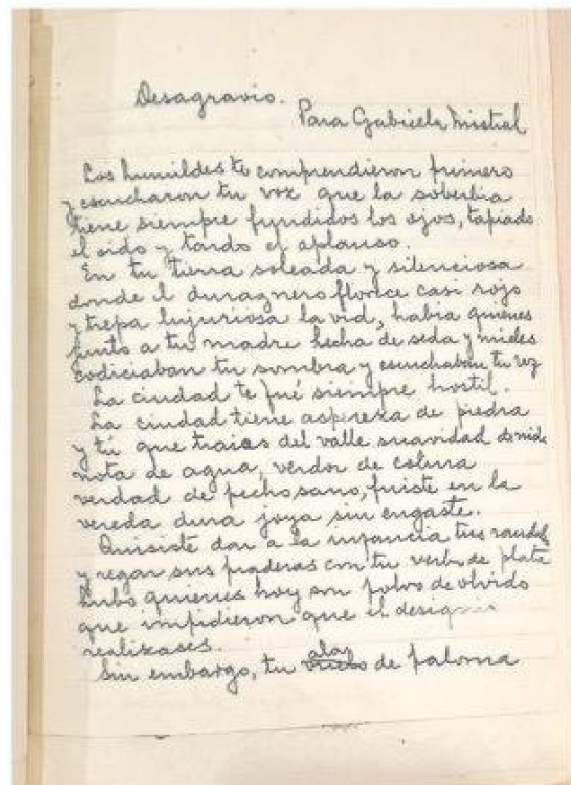 Desagravio.
Para Gabriela Mistral
Los humildes te comprendieron primero
y escucharon tu voz que la soberbia
tiene siempre fundidos los ojos, tapiado
el oido y tardo el aplauso.
En tu tierra soleada y silenciosa
donde el duraznero florece casi rojo
y trepa lujuriosa la vid, habia quienes
junto a tu madre hecha de seda y mieles
codiciaban tu sombra y escuchaban tu voz
La ciudad te fué siempre hostil.
La ciudad tiene aspereza de piedra
y tú que traias del valle suavidad de nido
nota de agua, verdor de colina
verdad de pecho sano, fuiste en la
vereda dura joya sin engaste.
Quisiste dar a la infancia tus
y regar sus praderas con tu verbo de plata
hubo quienes hoy son polvo de olvido
que impidieron que el
realizases.
alas
Sin embargo, tu vuelo de paloma